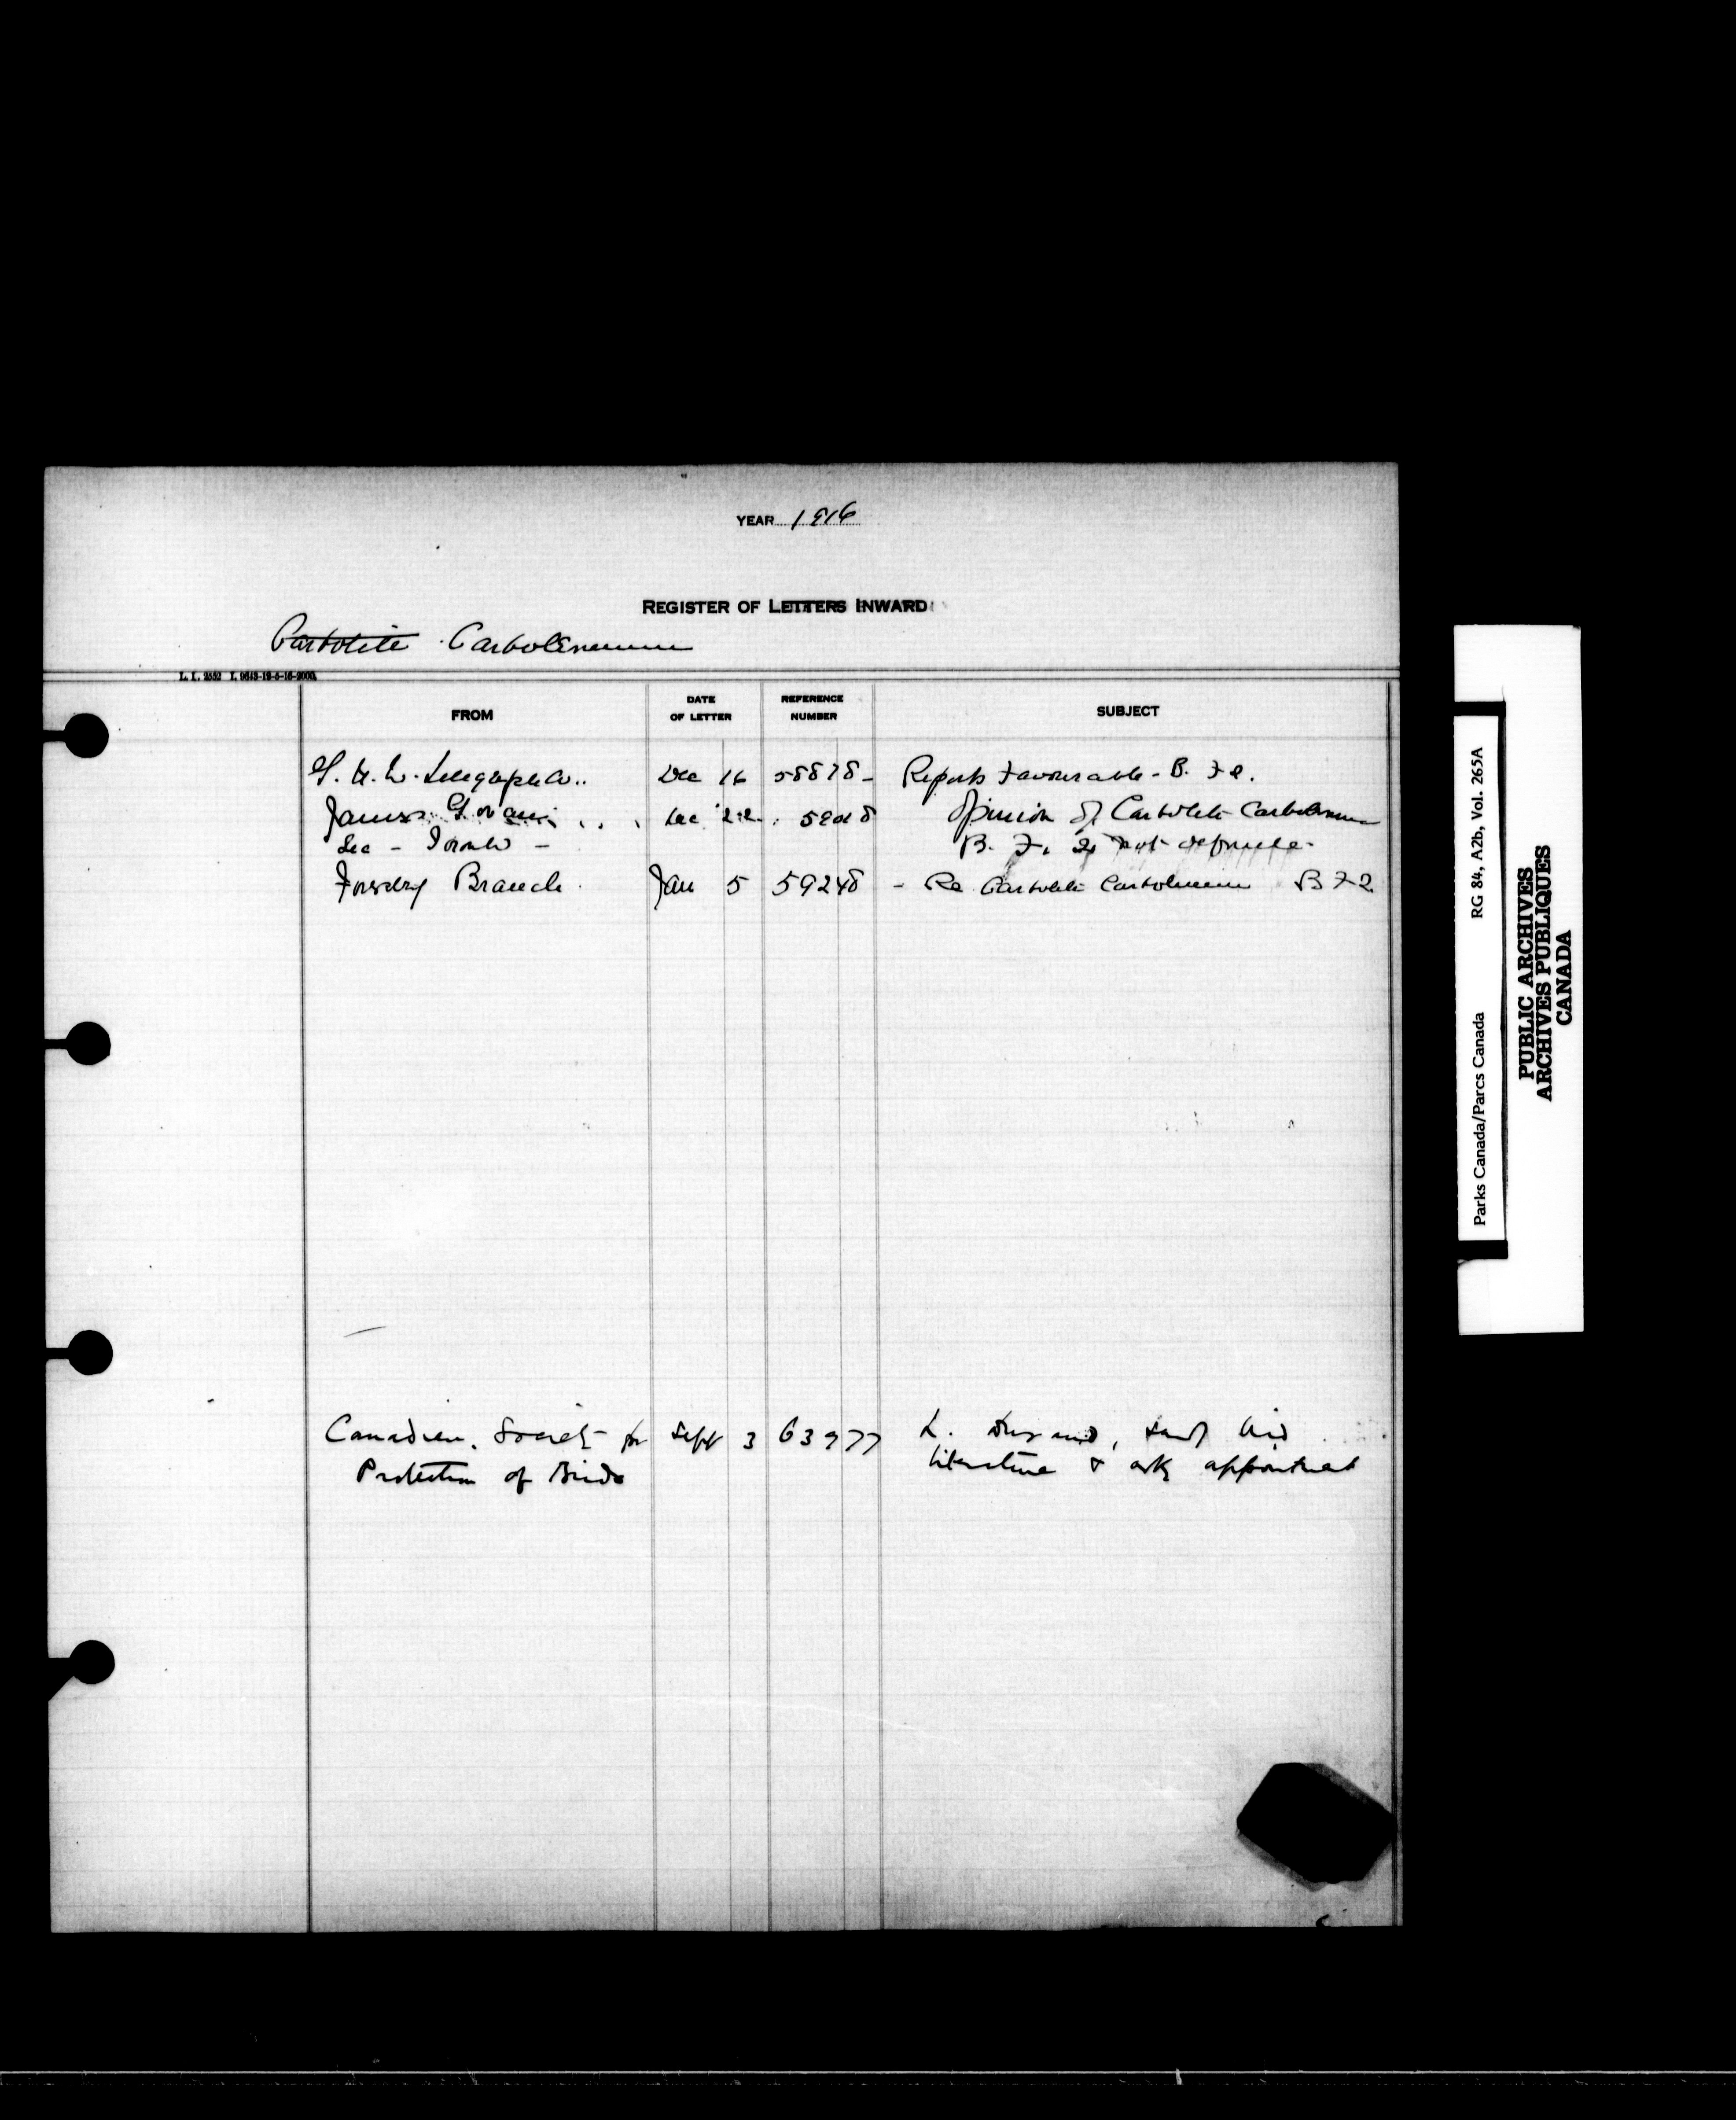 YEAR 1916
REGISTER OF LETTERS INWARD
Carbolite Carbolineum
L. I. 2552 I. 9643-12-5-16-2000.
FROM
DATE
OF LETTER
REFERENCE
NUMBER
SUBJECT
G. N. W. Telegraph Co. Dec 16 58878 - Reports Favourable - B. F 2.
James Dec 22 Opinion of Carbolite Carbolineum
Sec - Toronto - B. F. 2 not definite.
Forestry Branch Jan 5 59248 - Re Carbolite Carbolineum B F 2
Canadian Society for Sept 3 63977 L. send bird
Protection of Birds literature & ask appointment
Parks Canada/Parcs Canada RG 84, A2b, Vol. 265A
PUBLIC ARCHIVES
ARCHIVES PUBLIQUES
CANADA